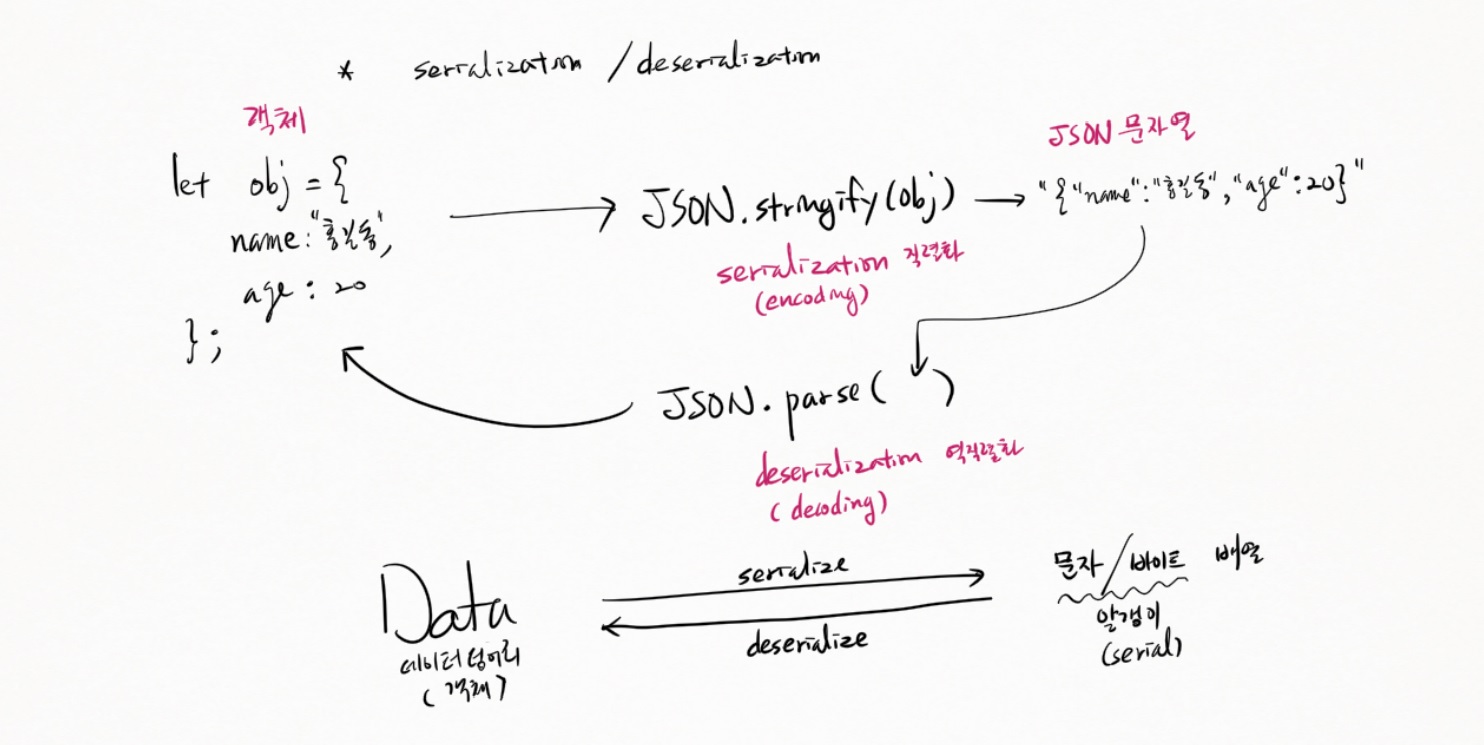 * serialization / deserialization
객체
let obj = {
name: "홍길동",
age: 20
};
JSON.stringify(obj)
serialization 직렬화
(encoding)
JSON 문자열
"{"name":"홍길동","age":20}"
JSON.parse( )
deserialization 역직렬화
(decoding)
Data
데이터 덩어리
(객체)
serialize
deserialize
문자/바이트 배열
알갱이
(serial)